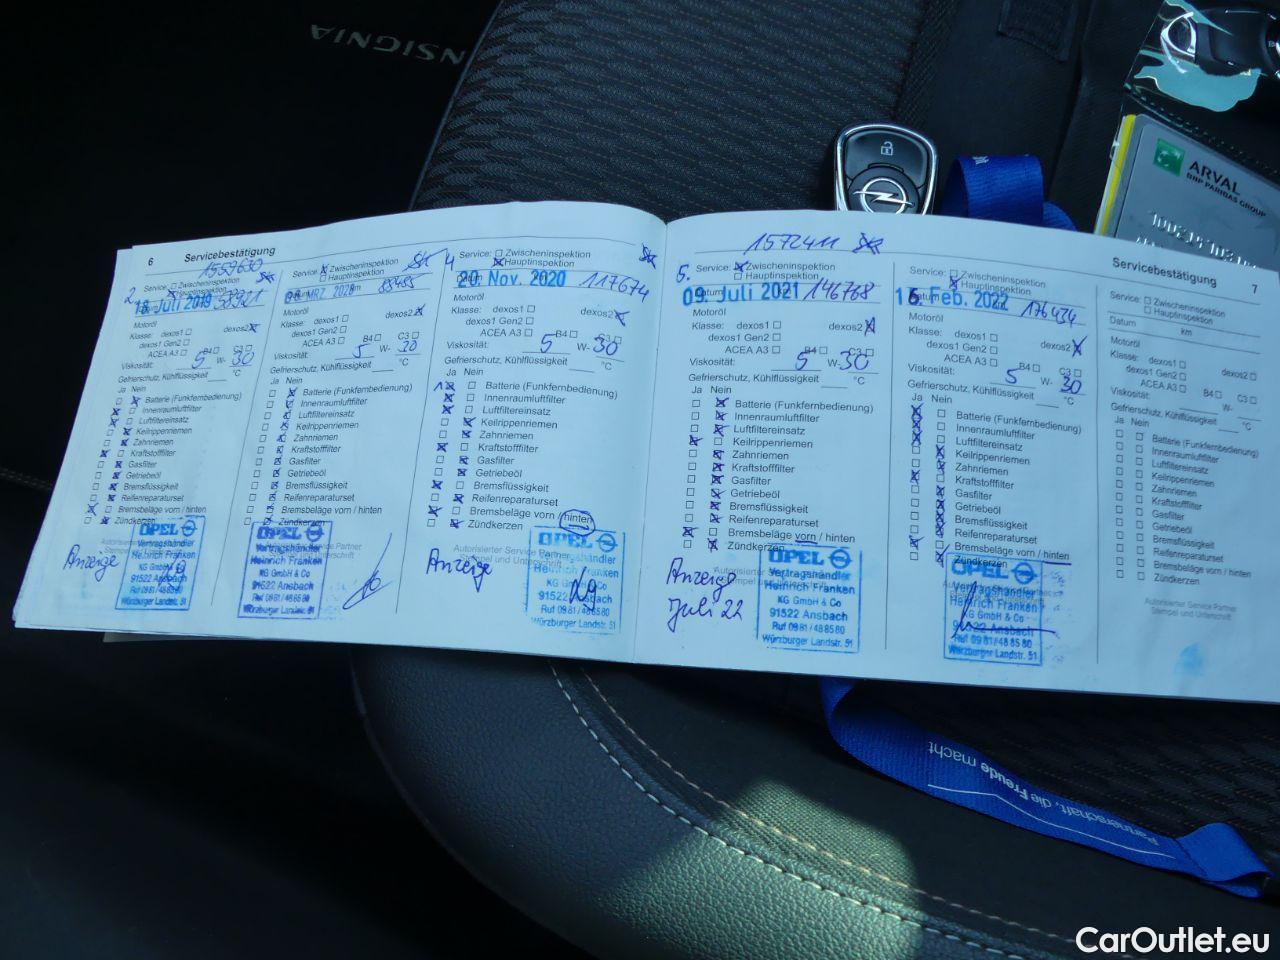 INSIGNIA
ARVAL
BNP PARIBAS GROUP
6 Servicebestätigung
1559630
2.
Service: Zwischeninspektion
Hauptinspektion
18. Juli 2019 58921
Motoröl
Klasse: dexos1 dexos2
dexos1 Gen2
ACEA A3 B4 C3
Viskosität: 5 W- 30
Gefrierschutz, Kühlflüssigkeit °C
Ja Nein
Batterie (Funkfernbedienung)
Innenraumluftfilter
Luftfiltereinsatz
Keilrippenriemen
Zahnriemen
Kraftstofffilter
Gasfilter
Getriebeöl
Bremsflüssigkeit
Reifenreparaturset
Bremsbeläge vorn / hinten
Zündkerzen
Anzeige
OPEL
Vertragshändler
Heinrich Franken
KG GmbH & Co
91522 Ansbach
Ruf 09 81 / 48 85 80
Würzburger Landstr. 51
Service: Zwischeninspektion
Hauptinspektion
MRZ. 2020 88485
Motoröl
Klasse: dexos1 dexos2
dexos1 Gen2
ACEA A3 B4 C3
Viskosität: 5 W- 30
Gefrierschutz, Kühlflüssigkeit °C
Ja Nein
Batterie (Funkfernbedienung)
Innenraumluftfilter
Luftfiltereinsatz
Keilrippenriemen
Zahnriemen
Kraftstofffilter
Gasfilter
Getriebeöl
Bremsflüssigkeit
Reifenreparaturset
Bremsbeläge vorn / hinten
Zündkerzen
OPEL
Vertragshändler
Heinrich Franken
KG GmbH & Co
91522 Ansbach
Ruf 09 81 / 48 85 80
Würzburger Landstr. 51
4
Service: Zwischeninspektion
Hauptinspektion
20. Nov. 2020 117674
Motoröl
Klasse: dexos1 dexos2
dexos1 Gen2
ACEA A3 B4 C3
Viskosität: 5 W- 30
Gefrierschutz, Kühlflüssigkeit °C
Ja Nein
Batterie (Funkfernbedienung)
Innenraumluftfilter
Luftfiltereinsatz
Keilrippenriemen
Zahnriemen
Kraftstofffilter
Gasfilter
Getriebeöl
Bremsflüssigkeit
Reifenreparaturset
Bremsbeläge vorn / hinten
Zündkerzen
Autorisierter Service Partner
Stempel und Unterschrift
Anzeige
OPEL
Vertragshändler
Heinrich Franken
KG GmbH & Co
91522 Ansbach
Ruf 09 81 / 48 85 80
Würzburger Landstr. 51
1572411
5.
Service: Zwischeninspektion
Hauptinspektion
09. Juli 2021 146768
Motoröl
Klasse: dexos1 dexos2
dexos1 Gen2
ACEA A3 B4 C3
Viskosität: 5 W- 30
Gefrierschutz, Kühlflüssigkeit °C
Ja Nein
Batterie (Funkfernbedienung)
Innenraumluftfilter
Luftfiltereinsatz
Keilrippenriemen
Zahnriemen
Kraftstofffilter
Gasfilter
Getriebeöl
Bremsflüssigkeit
Reifenreparaturset
Bremsbeläge vorn / hinten
Zündkerzen
Anzeige
Juli 22
OPEL
Vertragshändler
Heinrich Franken
KG GmbH & Co
91522 Ansbach
Ruf 09 81 / 48 85 80
Würzburger Landstr. 51
Service: Zwischeninspektion
Hauptinspektion
Feb. 2022 176434
Motoröl
Klasse: dexos1 dexos2
dexos1 Gen2
ACEA A3 B4 C3
Viskosität: 5 W- 30
Gefrierschutz, Kühlflüssigkeit °C
Ja Nein
Batterie (Funkfernbedienung)
Innenraumluftfilter
Luftfiltereinsatz
Keilrippenriemen
Zahnriemen
Kraftstofffilter
Gasfilter
Getriebeöl
Bremsflüssigkeit
Reifenreparaturset
Bremsbeläge vorn / hinten
Zündkerzen
OPEL
Vertragshändler
Heinrich Franken
KG GmbH & Co
91522 Ansbach
Ruf 09 81 / 48 85 80
Würzburger Landstr. 51
Servicebestätigung 7
Service: Zwischeninspektion
Hauptinspektion
Datum km
Motoröl
Klasse: dexos1 dexos2
dexos1 Gen2
ACEA A3 B4 C3
Viskosität: W-
Gefrierschutz, Kühlflüssigkeit °C
Ja Nein
Batterie (Funkfernbedienung)
Innenraumluftfilter
Luftfiltereinsatz
Keilrippenriemen
Zahnriemen
Kraftstofffilter
Gasfilter
Getriebeöl
Bremsflüssigkeit
Reifenreparaturset
Bremsbeläge vorn / hinten
Zündkerzen
Autorisierter Service Partner
Stempel und Unterschrift
Partnerschaft, die Freude macht
CarOutlet.eu